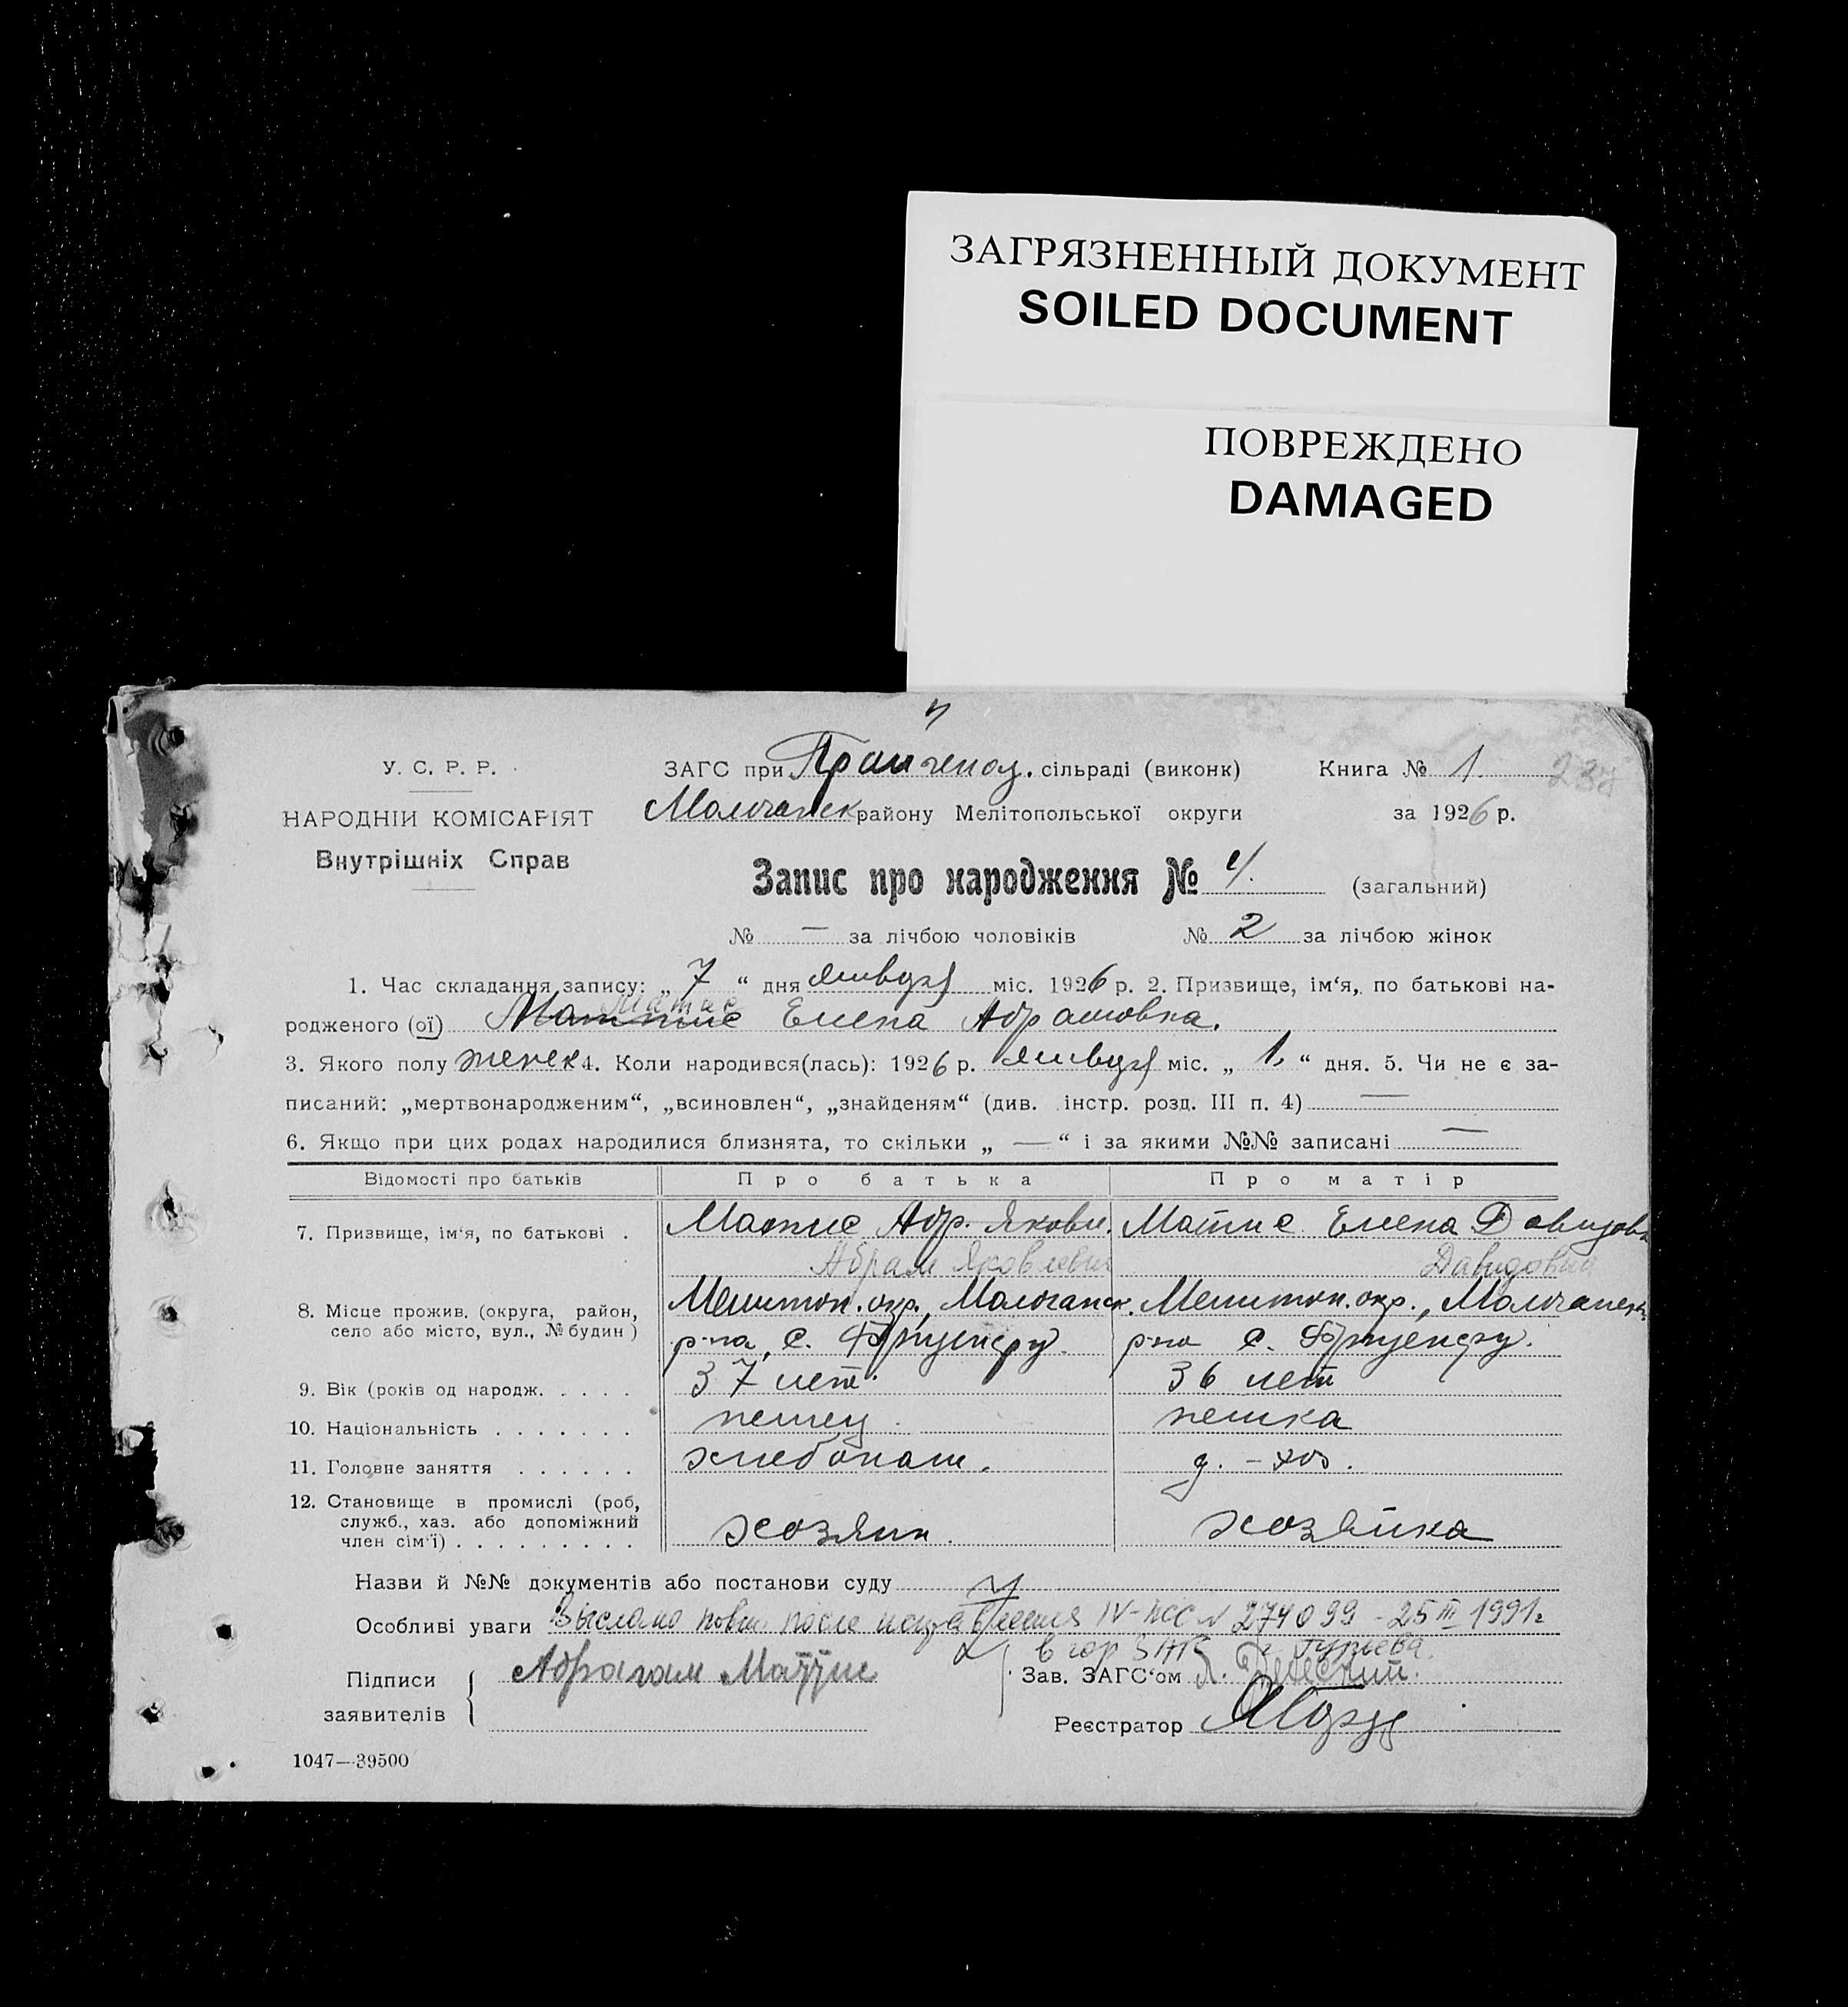 ЗАГРЯЗНЕННЫЙ ДОКУМЕНТ
SOILED DOCUMENT
ПОВРЕЖДЕНО
DAMAGED
У. С. Р. Р.
НАРОДНІЙ КОМІСАРІЯТ
Внутрішніх Справ
ЗАГС при сільраді (виконк) Книга № 1.
Молочанск району Мелітопольської округи за 1926 р.
Запис про народження № 4. (загальний)
№ — за лічбою чоловіків № 2 за лічбою жінок
1. Час складання запису: „ 7 “ дня января міс. 1926 р. 2. Призвище, ім‘я, по батькові на-
Матис
родженого (ої) Маттис Елена Абрамовна.
3. Якого полу женск 4. Коли народився(лась): 1926 р. января міс. „ 1, “ дня. 5. Чи не є за-
писаний: „мертвонародженим“, „всиновлен“, „знайденям“ (див. інстр. розд. III п. 4) —
6. Якщо при цих родах народилися близнята, то скільки „ — “ і за якими №№ записані —
Відомості про батьків Про батька Про матір
7. Призвище, ім‘я, по батькові . Матис Абр. Яковл. Матис Елена Давидовн
Абрам Яковлевич Давидовна
8. Місце прожив. (округа, район, село або місто, вул., № будин) Мелитоп. окр., Молочанск. Мелитоп. окр., Молочанск
р-на, с. р-на с.
9. Вік (років од народж. . . . . 37 лет. 36 лет
10. Національність . . . . . . . немец немка
11. Головне заняття . . . . . . хлебопаш. д. – хоз.
12. Становище в промислі (роб, служб., хаз. або допоміжний член сім‘ї) . . . . . . . . . хозяин. хозяйка
Назви й №№ документів або постанови суду
Особливі уваги Выслано повт. после № 274099 - 25 III 1991г
в гор ЗАГС г. Гурьева.
Підписи заявителів Абрагам Маттис Зав. ЗАГС‘ом
Реєстратор
1047—39500